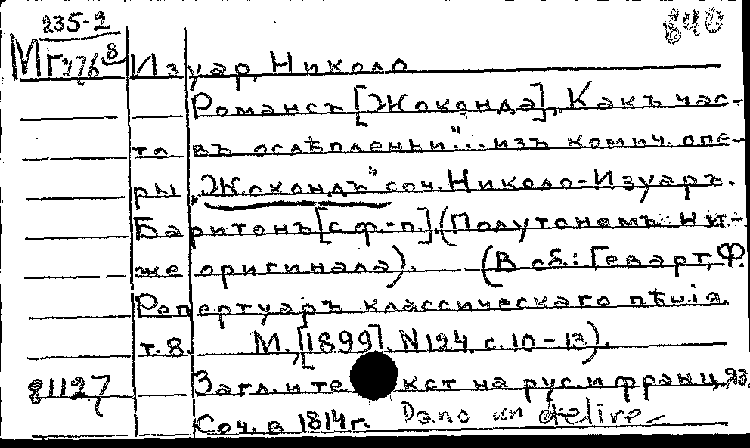 235-2
840
Мг776⁸ Изуар, Николо
Романсъ [Жоконда], "Какъ час-
то въ ослѣпленьи"... изъ комич. опе-
ры "Жокондъ" соч. Николо-Изуаръ.
Баритонъ [с ф.-п.]. (Полутономъ ни-
же оригинала). (В сб.: Геварт, Ф.
Репертуаръ классическаго пѣнія.
т. 8. М., [1899]. N124. с. 10-13).
81127 Загл. и текст на рус. и франц. яз.
Соч. в 1814г. Dans un délire